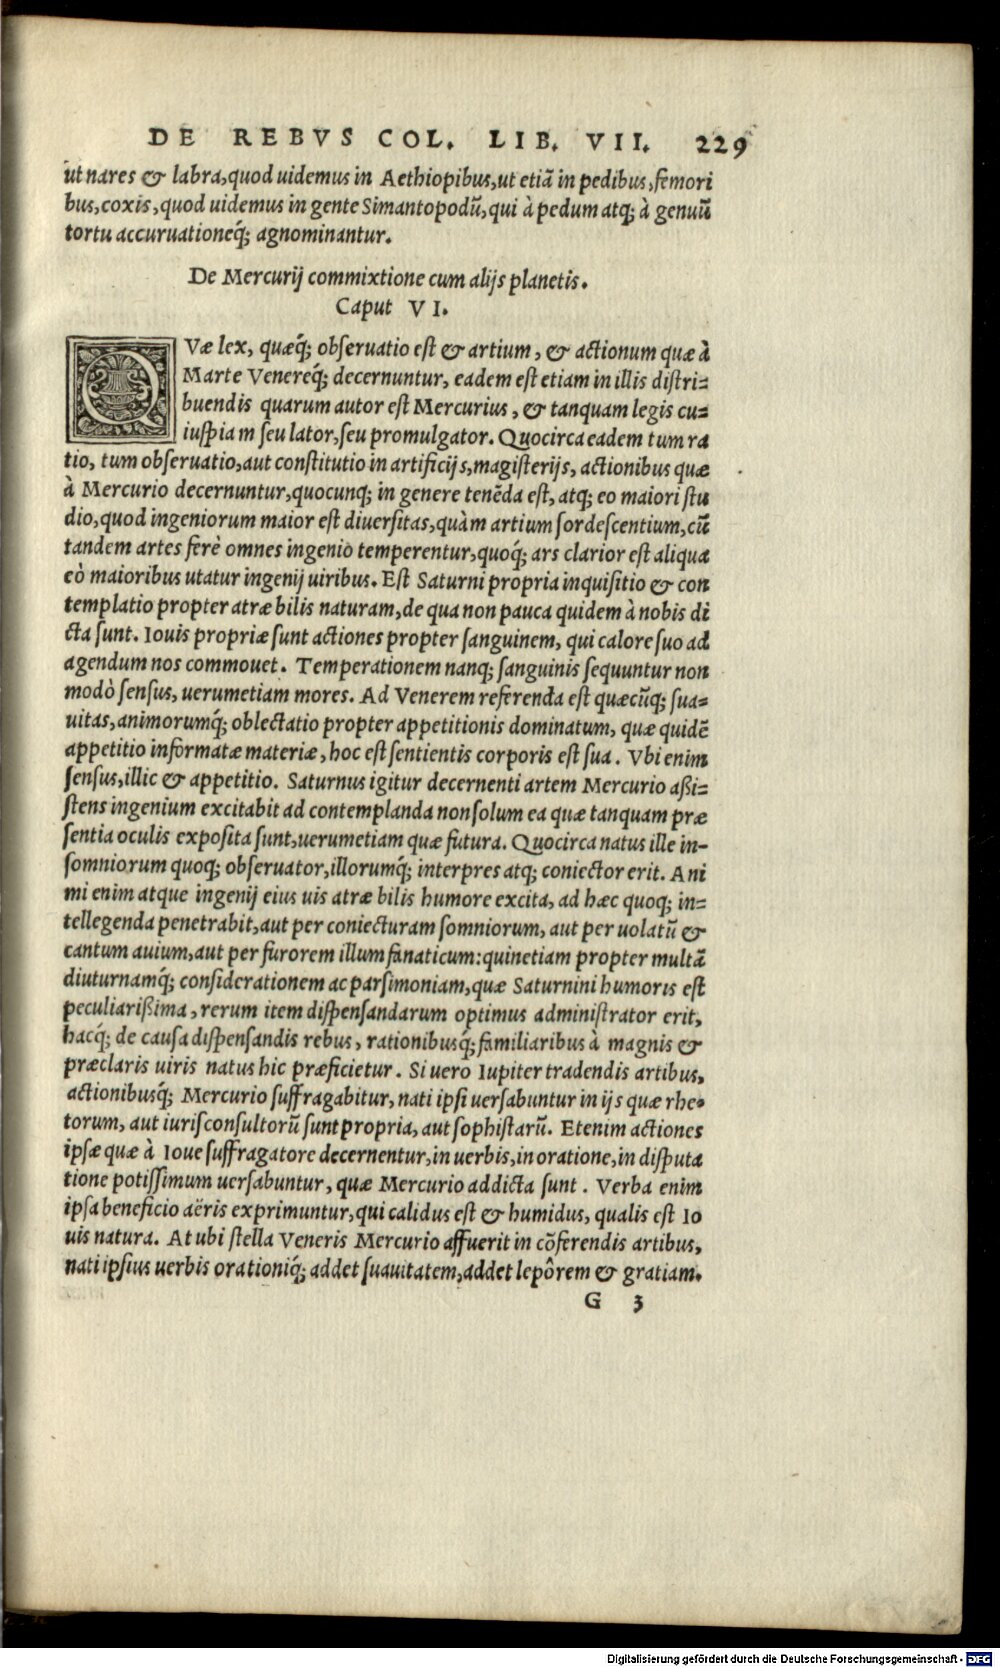 DE REBVS COL. LIB. VII. 229
ut nares & labra, quod uidemus in Aethiopibus, ut etiã in pedibus, femori
bus, coxis, quod uidemus in gente Simantopodũ, qui à pedum atq; à genuũ
tortu accuruationeq́; agnominantur.
De Mercurij commixtione cum alijs planetis.
Caput VI.
QVæ lex, quæq́; obseruatio est & artium, & actionum quæ à
Marte Venereq́; decernuntur, eadem est etiam in illis distri=
buendis quarum autor est Mercurius, & tanquam legis cu=
iuspiam seu lator, seu promulgator. Quocirca eadem tum ra
tio, tum obseruatio, aut constitutio in artificijs, magisterijs, actionibus quæ
à Mercurio decernuntur, quocunq; in genere tenẽda est, atq; eo maiori stu
dio, quod ingeniorum maior est diuersitas, quàm artium sordescentium, cũ
tandem artes ferè omnes ingenio temperentur, quoq́; ars clarior est aliqua
eò maioribus utatur ingenij uiribus. Est Saturni propria inquisitio & con
templatio propter atræ bilis naturam, de qua non pauca quidem à nobis di
cta sunt. Iouis propriæ sunt actiones propter sanguinem, qui calore suo ad
agendum nos commouet. Temperationem nanq; sanguinis sequuntur non
modò sensus, uerumetiam mores. Ad Venerem referenda est quæcũq; sua=
uitas, animorumq́; oblectatio propter appetitionis dominatum, quæ quidẽ
appetitio informatæ materiæ, hoc est sentientis corporis est sua. Vbi enim
sensus, illic & appetitio. Saturnus igitur decernenti artem Mercurio aßi=
stens ingenium excitabit ad contemplanda non solum ea quæ tanquam præ
sentia oculis exposita sunt, uerumetiam quæ futura. Quocirca natus ille in-
somniorum quoq; obseruator, illorumq́; interpres atq; coniector erit. Ani
mi enim atque ingenij eius uis atræ bilis humore excita, ad hæc quoq; in=
tellegenda penetrabit, aut per coniecturam somniorum, aut per uolatũ &
cantum auium, aut per furorem illum fanaticum: quinetiam propter multã
diuturnamq́; considerationem ac parsimoniam, quæ Saturnini humoris est
peculiarißima, rerum item dispensandarum optimus administrator erit,
hacq́; de causa dispensandis rebus, rationibusq́; familiaribus à magnis &
præclaris uiris natus hic præficietur. Si uero Iupiter tradendis artibus,
actionibusq́; Mercurio suffragabitur, nati ipsi uersabuntur in ijs quæ rhe-
torum, aut iurisconsultorũ sunt propria, aut sophistarũ. Etenim actiones
ipsæ quæ à Ioue suffragatore decernentur, in uerbis, in oratione, in disputa
tione potissimum uersabuntur, quæ Mercurio addicta sunt. Verba enim
ipsa beneficio aëris exprimuntur, qui calidus est & humidus, qualis est Io
uis natura. At ubi stella Veneris Mercurio affuerit in cõferendis artibus,
nati ipsius uerbis orationiq́; addet suauitatem, addet lepôrem & gratiam.
G 3
Digitalisierung gefördert durch die Deutsche Forschungsgemeinschaft - DFG